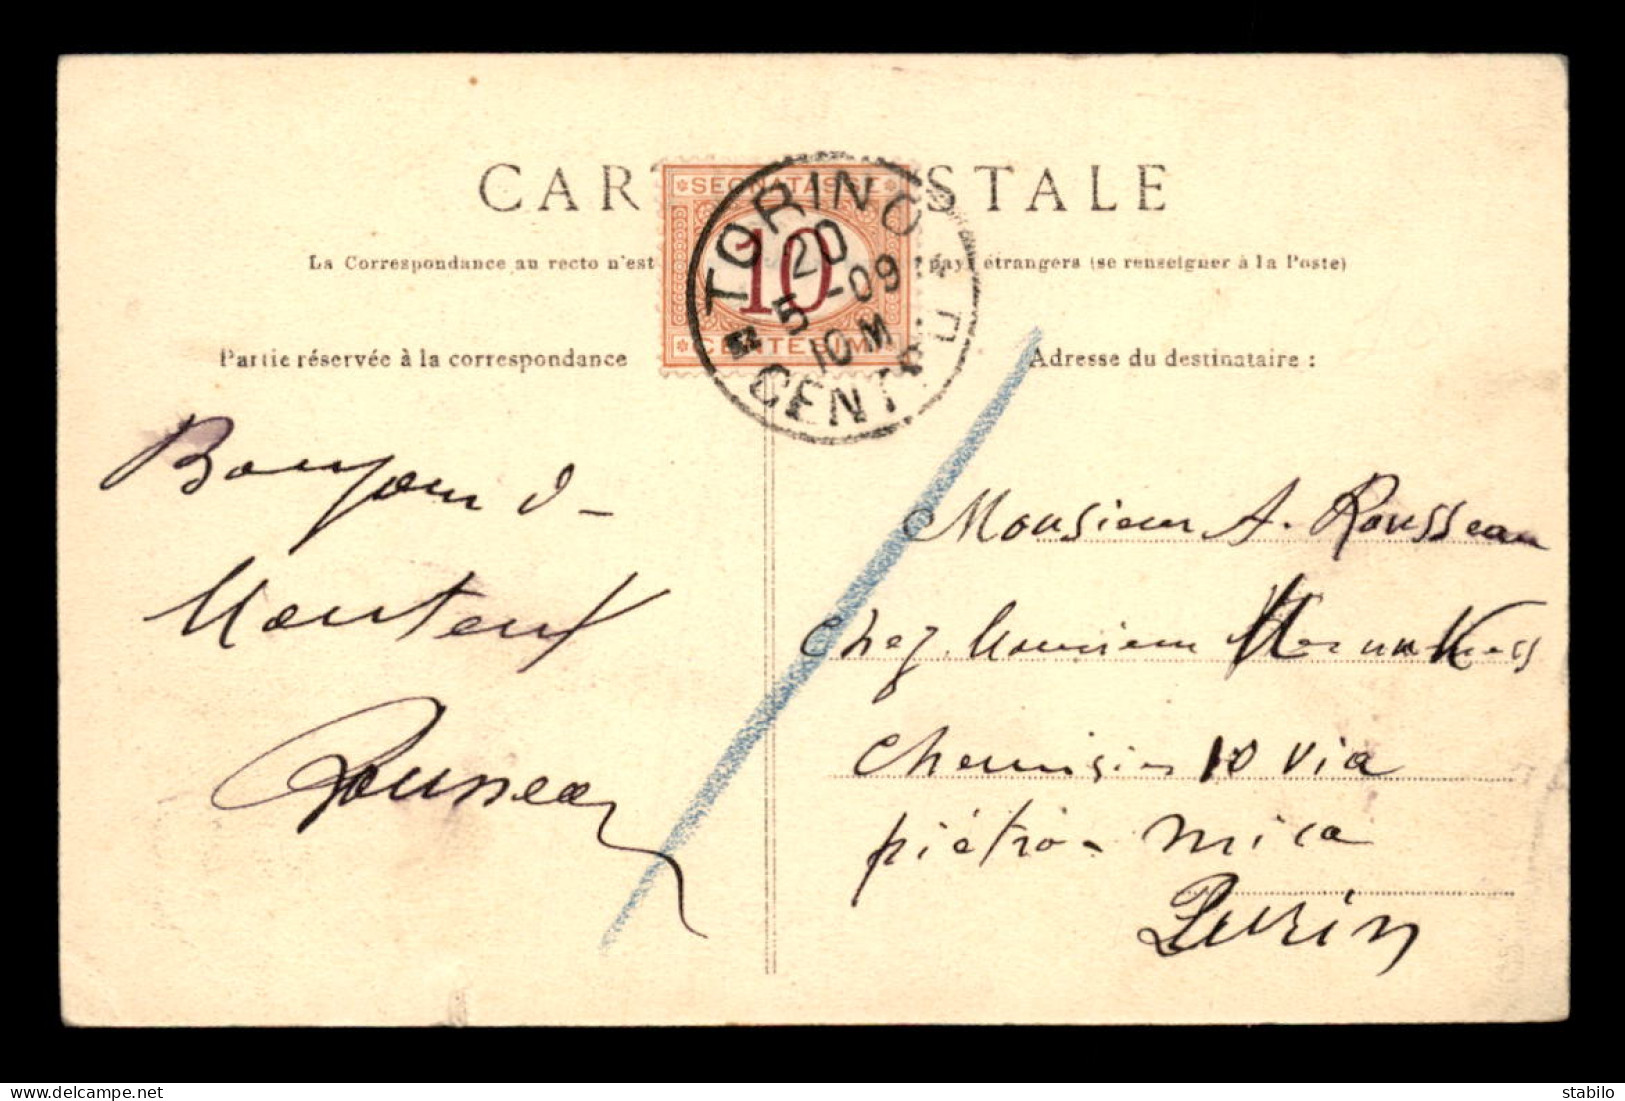 CAR STALE
La Correspondance au recto n'est pays étrangers (se renseigner à la Poste)
SEGNATASSE
10
CENTESIMI
TORINO
20
5 -09
10 M
CENTRO
Partie réservée à la correspondance
Adresse du destinataire :
Bonjour d-
Monteux
Rousseau
Monsieur A. Rousseau
Chez Monsieur
Chemisier 10 via
piétro- mica
Turin
delcampe.net
stabilo